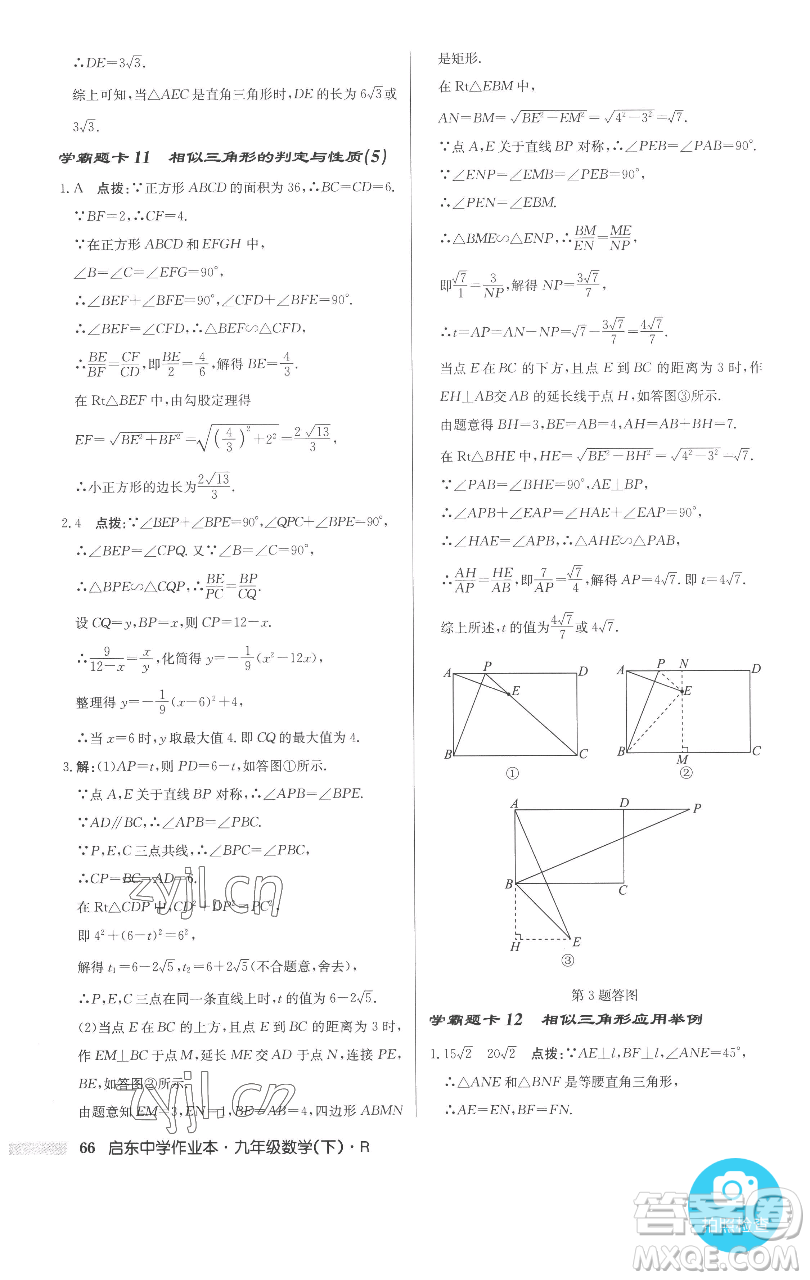 ∴DE=3√3.
综上可知，当△AEC是直角三角形时，DE的长为6√3或
3√3.
学霸题卡11 相似三角形的判定与性质(5)
1.A 点拨：∵正方形ABCD的面积为36，∴BC=CD=6.
∵BF=2，∴CF=4.
∵在正方形ABCD和EFGH中，
∠B=∠C=∠EFG=90°，
∴∠BEF+∠BFE=90°，∠CFD+∠BFE=90°，
∴∠BEF=∠CFD，∴△BEF∽△CFD，
∴BE/BF=CF/CD，即BE/2=4/6，解得BE=4/3.
在Rt△BEF中，由勾股定理得
EF=√(BE²+BF²)=√((4/3)²+2²)=2√13/3，
∴小正方形的边长为2√13/3.
2.4 点拨：∵∠BEP+∠BPE=90°，∠QPC+∠BPE=90°，
∴∠BEP=∠CPQ.又∵∠B=∠C=90°，
∴△BPE∽△CQP，∴BE/PC=BP/CQ.
设CQ=y，BP=x，则CP=12-x.
∴9/(12-x)=x/y，化简得y=-1/9(x²-12x)，
整理得y=-1/9(x-6)²+4，
∴当x=6时，y取最大值4.即CQ的最大值为4.
3.解：(1)AP=t，则PD=6-t，如答图①所示.
∵点A，E关于直线BP对称，∴∠APB=∠BPE.
∵AD∥BC，∴∠APB=∠PBC.
∵P，E，C三点共线，∴∠BPC=∠PBC，
∴CP=BC=AD=6.
在Rt△CDP中，CD²+DP²=PC²，
即4²+(6-t)²=6²，
解得t₁=6-2√5，t₂=6+2√5(不合题意，舍去)，
∴P，E，C三点在同一条直线时，t的值为6-2√5.
(2)当点E在BC的上方，且点E到BC的距离为3时，
作EM⊥BC于点M，延长ME交AD于N，连接PE，
BE，如答图②所示.
由题意知EM=3，EN=1，BE=AB=4，四边形ABMN
66 启东中学作业本·九年级数学(下)·R
是矩形.
在Rt△EBM中，
AN=BM=√(BE²-EM²)=√(4²-3²)=√7.
∵点A，E关于直线BP对称，∴∠PEB=∠A=90°.
∵∠ENP=∠EMB=∠PEB=90°，
∴∠PEN=∠EBM.
∴△BME∽△ENP，∴BM/EN=ME/NP，
即√7/1=3/NP，解得NP=3√7/7，
∴t=AP=AN-NP=√7-3√7/7=4√7/7.
当点E在BC的下方，且点E到BC的距离为3时，作
EH⊥AB交AB的延长线于点H，如答图③所示.
由题意得BH=3，BE=AB=4，AH=AB+BH=7.
在Rt△BHE中，HE=√(BE²-BH²)=√(4²-3²)=√7.
∵∠PAB=∠BHE=90°，AE⊥BP，
∴∠APB+∠EAP=∠HAE+∠EAP=90°，
∴∠HAE=∠APB，∴△AHE∽△PAB，
∴AH/AP=HE/AB，即7/AP=√7/4，解得AP=4√7.即t=4√7.
综上所述，t的值为4√7/7或4√7.
A P D E B C ①
A P N D E B M C ②
A D P B C H E ③
第3题答图
学霸题卡12 相似三角形应用举例
1.15√2 20√2 点拨：∵AE⊥l，BF⊥l，∠ANE=45°，
∴△ANE和△BNF是等腰直角三角形，
∴AE=EN，BF=FN，
zyjl.cn
zyjl.cn
答案卷
拍照检查
MXQE.COM